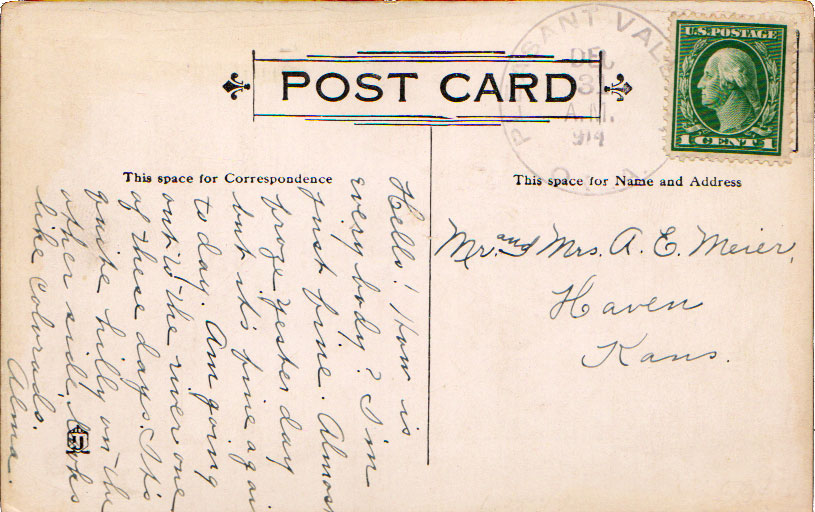 POST CARD
PLEASANT VAL
DEC
31
A.M.
1914
O
U.S. POSTAGE
1 CENT 1
This space for Correspondence
This space for Name and Address
Hello! How is
every body? I'm
just fine. Almost
froze yesterday
but it's fine again
today. Am going
out to the river one
of these days. It's
quite hilly on the
other side, looks
like Colorado.
Alma.
Mr. and Mrs. A. E. Meier,
Haven
Kans.